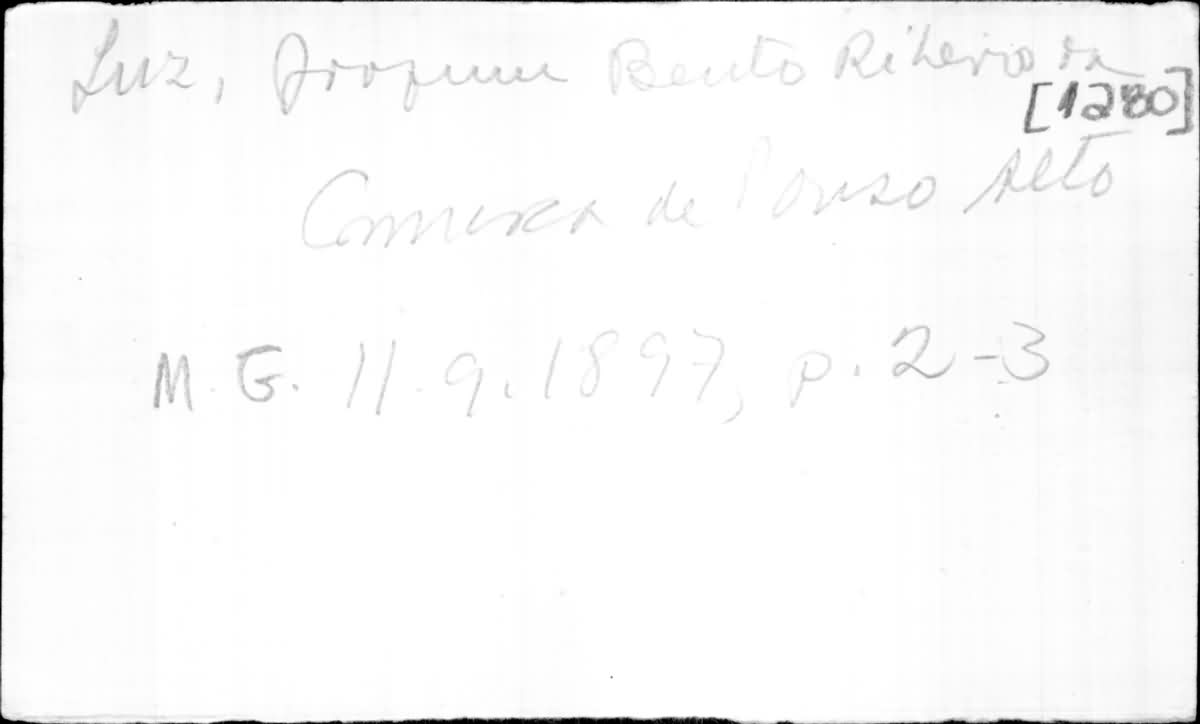 Luz, Joaquim Bento Ribeiro da
[1280]
Comarca de Pouso Alto
M. G. 11.9.1897, p. 2-3